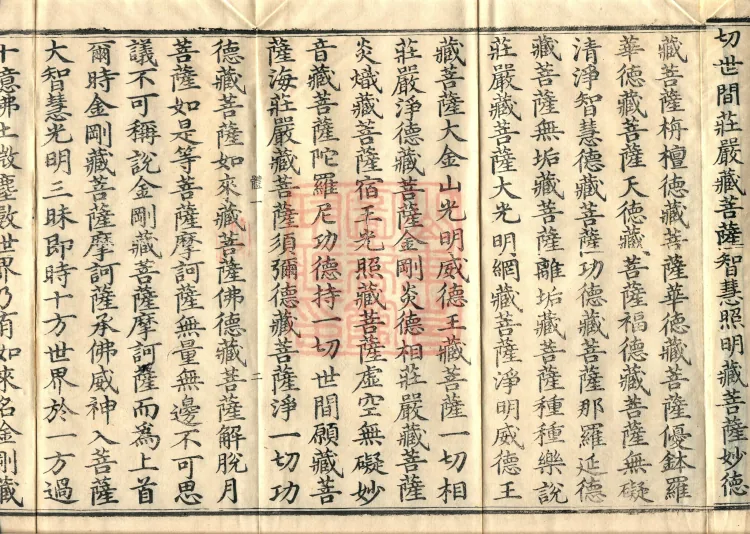 切世間莊嚴藏菩薩智慧照明藏菩薩妙德
藏菩薩栴檀德藏菩薩華德藏菩薩優鉢羅
華德藏菩薩天德藏菩薩福德藏菩薩無礙
清淨智慧德藏菩薩功德藏菩薩那羅延德
藏菩薩無垢藏菩薩離垢藏菩薩種種樂說
莊嚴藏菩薩大光明網藏菩薩淨明威德王
藏菩薩大金山光明威德王藏菩薩一切相
莊嚴淨德藏菩薩金剛炎德相莊嚴藏菩薩
炎熾藏菩薩宿王光照藏菩薩虛空無礙妙
音藏菩薩陀羅尼功德持一切世間願藏菩
薩海莊嚴藏菩薩須彌德藏菩薩淨一切功
體一
二
德藏菩薩如來藏菩薩佛德藏菩薩解脫月
菩薩如是等菩薩摩訶薩無量無邊不可思
議不可稱說金剛藏菩薩摩訶薩而為上首
爾時金剛藏菩薩摩訶薩承佛威神入菩薩
大智慧光明三昧即時十方世界於一方過
十億佛土微塵數世界乃有如來名金剛藏